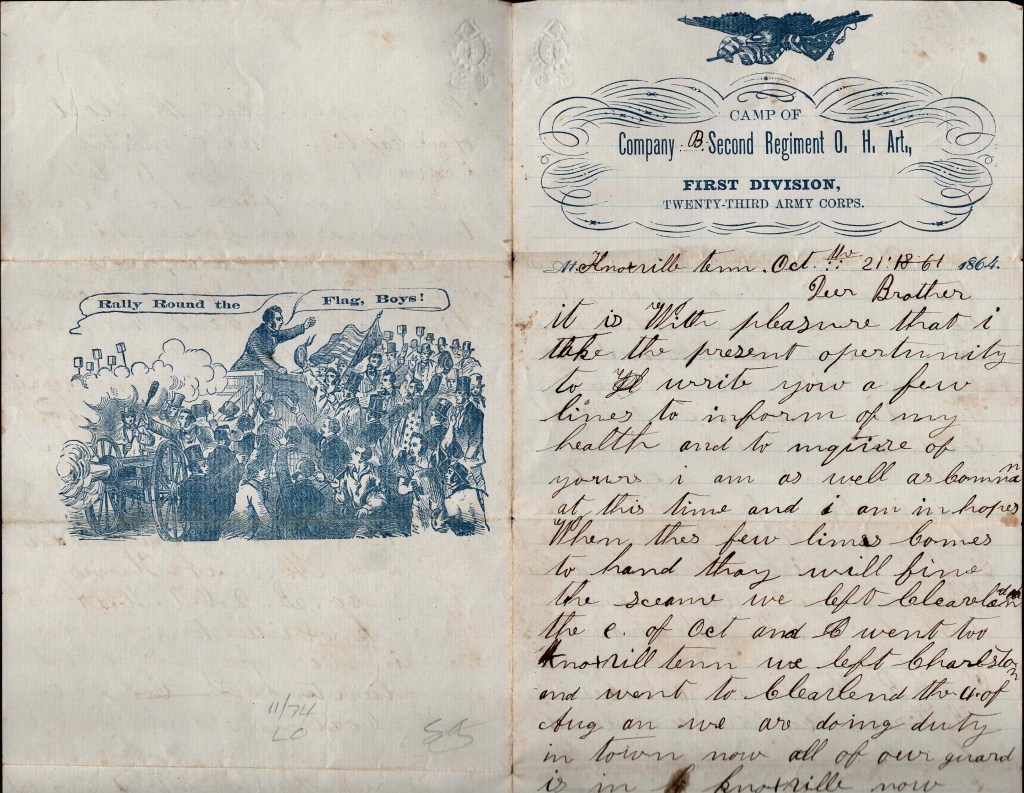 Rally Round the
Flag, Boys!
11/74
LC
CAMP OF
Company B. Second Regiment O. H. Art.,
FIRST DIVISION,
TWENTY-THIRD ARMY CORPS.
At Knoxville tenn. Oct. 21 18 61 1864.
Deer Brother
it is With pleasure that i
take the present opertunity
to write yow a few
lines to inform of my
health and to inquire of
yours i am as well as Comman
at this time and i am in hopes
When thes few lines Comes
to hand thay will fine
the sceame we left Cleaveland
the e. of Oct and went too
Knoxvill tenn we left Charlston
and went to Clearlend the 4 of
Aug an we are doing duty
in town now all of our guard
is in knoxville now